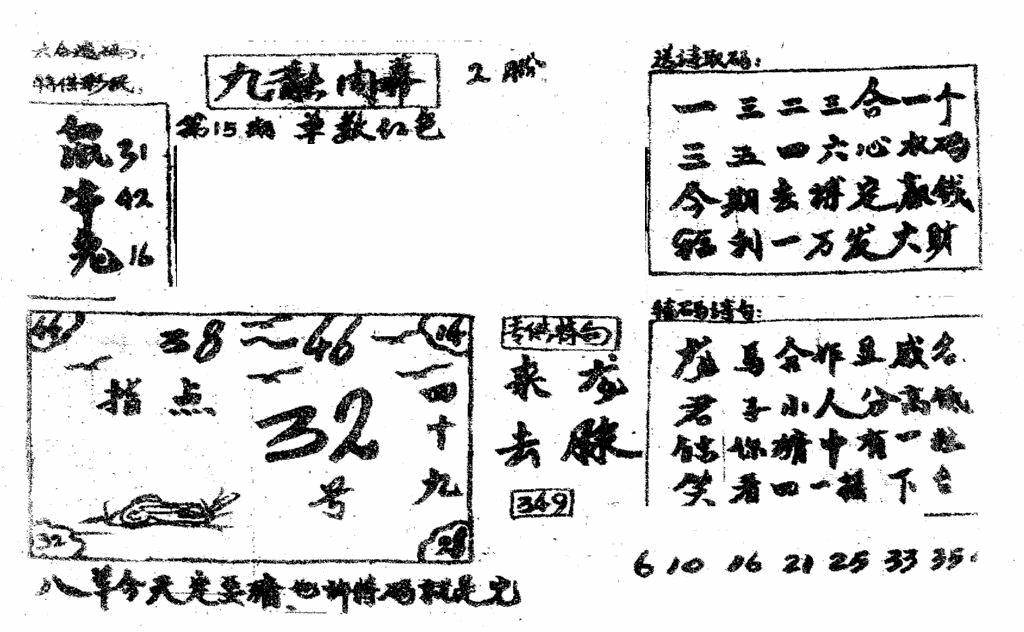 六合
特供
九龍内幕
2
第15期 单数红色
鼠31
牛42
兔16
送诗取码：
一三二三合一个
三五四六心水码
今期去搏定赢钱
利一万发大财
特码诗句：
马合作显威名
君子小人分高低
你猜中有一
笑看四一摇下台
44
38 46
14
指点
32
号
四十九
32
28
专供特句
来龙
去脉
349
6 10 16 21 25 33 35
八草今天定要猜 也许特码就是完